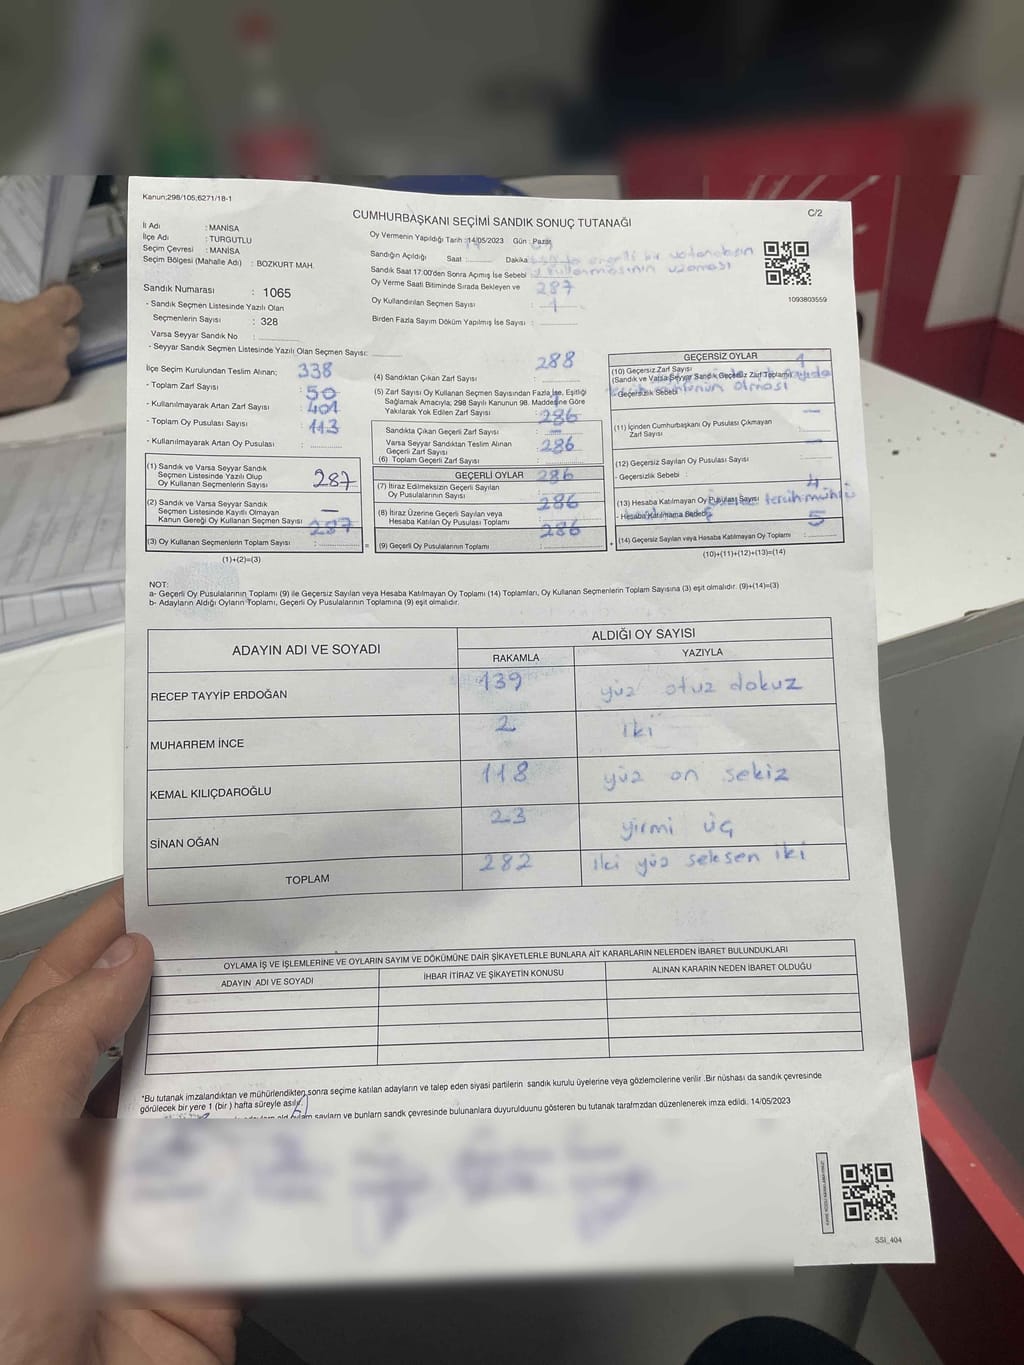 Kanun;298/105;6271/18-1
C/2
CUMHURBAŞKANI SEÇİMİ SANDIK SONUÇ TUTANAĞI
İl Adı : MANİSA
İlçe Adı : TURGUTLU
Seçim Çevresi : MANİSA
Seçim Bölgesi (Mahalle Adı) : BOZKURT MAH.
Sandık Numarası : 1065
- Sandık Seçmen Listesinde Yazılı Olan
Seçmenlerin Sayısı : 328
Varsa Seyyar Sandık No :
- Seyyar Sandık Seçmen Listesinde Yazılı Olan Seçmen Sayısı:
Oy Vermenin Yapıldığı Tarih :14/05/2023 Gün : Pazar
Sandığın Açıldığı Saat : Dakika
Sandık Saat 17:00'den Sonra Açılmış İse Sebebi
Oy Verme Saati Bitiminde Sırada Bekleyen ve 287
Oy Kullandırılan Seçmen Sayısı : 1
Birden Fazla Sayım Döküm Yapılmış İse Sayısı :
bir vatandaşın
uzaması
1093803559
İlçe Seçim Kurulundan Teslim Alınan; 338
- Toplam Zarf Sayısı : 50
- Kullanılmayarak Artan Zarf Sayısı : 401
- Toplam Oy Pusulası Sayısı : 113
- Kullanılmayarak Artan Oy Pusulası :
(1) Sandık ve Varsa Seyyar Sandık
Seçmen Listesinde Yazılı Olup
Oy Kullanan Seçmenlerin Sayısı 287
(2) Sandık ve Varsa Seyyar Sandık
Seçmen Listesinde Kayıtlı Olmayan —
Kanun Gereği Oy Kullanan Seçmen Sayısı 287
(3) Oy Kullanan Seçmenlerin Toplam Sayısı :
(1)+(2)=(3)
288
(4) Sandıktan Çıkan Zarf Sayısı :
(5) Zarf Sayısı Oy Kullanan Seçmen Sayısından Fazla İse, Eşitliği
Sağlamak Amacıyla; 298 Sayılı Kanunun 98. Maddesine Göre
Yakılarak Yok Edilen Zarf Sayısı : 286
Sandıkta Çıkan Geçerli Zarf Sayısı : —
Varsa Seyyar Sandıktan Teslim Alınan 286
Geçerli Zarf Sayısı
(6) Toplam Geçerli Zarf Sayısı :
GEÇERLİ OYLAR 286
(7) İtiraz Edilmeksizin Geçerli Sayılan
Oy Pusulalarının Sayısı 286
(8) İtiraz Üzerine Geçerli Sayılan veya
Hesaba Katılan Oy Pusulası Toplamı 286
(9) Geçerli Oy Pusulalarının Toplamı :
GEÇERSİZ OYLAR 1
(10) Geçersiz Zarf Sayısı
(Sandık ve Varsa Seyyar Sandık Geçersiz Zarf Toplamı)
- Geçersizlik Sebebi olması
(11) İçinden Cumhurbaşkanı Oy Pusulası Çıkmayan —
Zarf Sayısı
(12) Geçersiz Sayılan Oy Pusulası Sayısı : —
- Geçersizlik Sebebi :
4
(13) Hesaba Katılmayan Oy Pusulası Sayısı tercih mühlü
- Hesaba Katılmama Sebebi 5
(14) Geçersiz Sayılan veya Hesaba Katılmayan Oy Toplamı :
(10)+(11)+(12)+(13)=(14)
NOT:
a- Geçerli Oy Pusulalarının Toplamı (9) ile Geçersiz Sayılan veya Hesaba Katılmayan Oy Toplamı (14) Toplamları, Oy Kullanan Seçmenlerin Toplam Sayısına (3) eşit olmalıdır. (9)+(14)=(3)
b- Adayların Aldığı Oyların Toplamı, Geçerli Oy Pusulalarının Toplamına (9) eşit olmalıdır.
ADAYIN ADI VE SOYADI ALDIĞI OY SAYISI
RAKAMLA YAZIYLA
RECEP TAYYİP ERDOĞAN 139 yüz otuz dokuz
MUHARREM İNCE 2 iki
KEMAL KILIÇDAROĞLU 118 yüz on sekiz
SİNAN OĞAN 23 yirmi üç
TOPLAM 282 iki yüz seksen iki
OYLAMA İŞ VE İŞLEMLERİNE VE OYLARIN SAYIM VE DÖKÜMÜNE DAİR ŞİKAYETLERLE BUNLARA AİT KARARLARIN NELERDEN İBARET BULUNDUKLARI
ADAYIN ADI VE SOYADI İHBAR İTİRAZ VE ŞİKAYETİN KONUSU ALINAN KARARIN NEDEN İBARET OLDUĞU
*Bu tutanak imzalandıktan ve mühürlendikten sonra seçime katılan adayların ve talep eden siyasi partilerin sandık kurulu üyelerine veya gözlemcilerine verilir .Bir nüshası da sandık çevresinde
görülecek bir yere 1 (bir ) hafta süreyle asılır.
sayların ve bunların sandık çevresinde bulunanlara duyurulduunu gösteren bu tutanak tarafmzdan düzenlenerek imza edildi. 14/05/2023
SSI_404